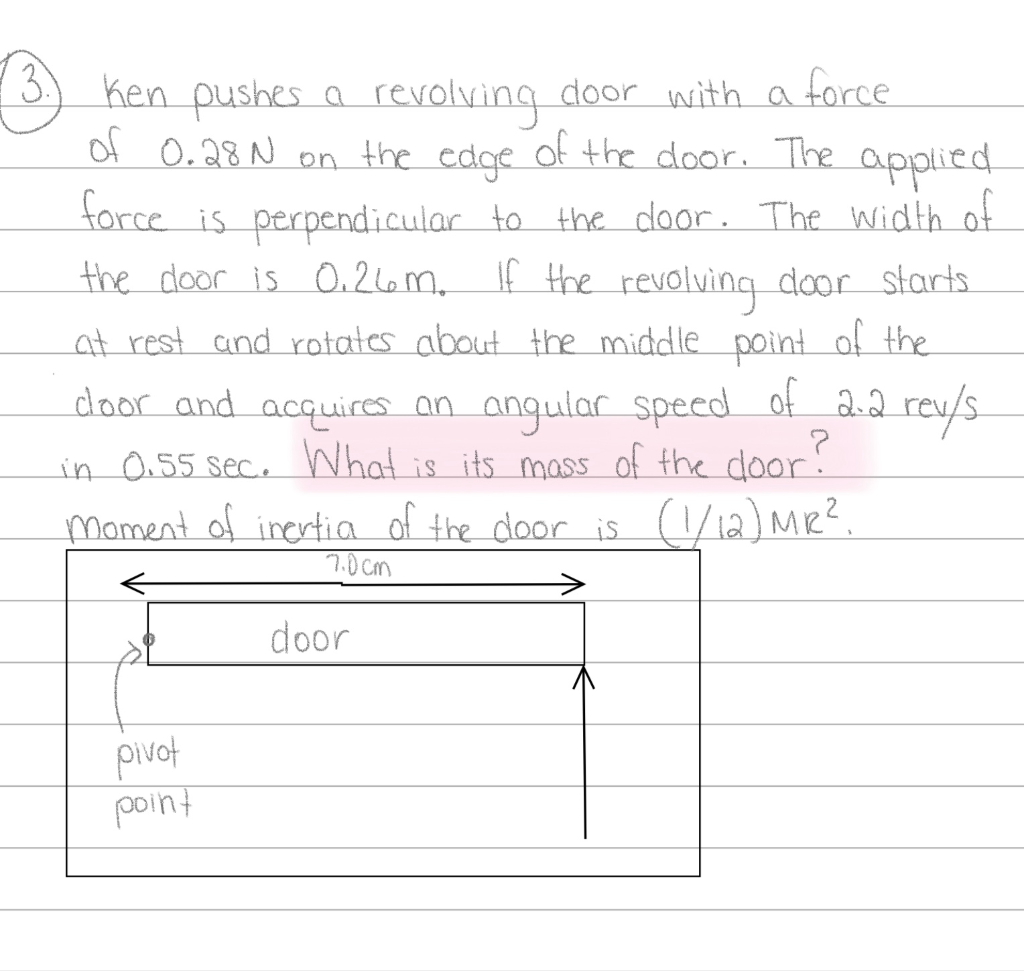 3. Ken pushes a revolving door with a force
of 0.28N on the edge of the door. The applied
force is perpendicular to the door. The width of
the door is 0.26m. If the revolving door starts
at rest and rotates about the middle point of the
door and acquires an angular speed of 2.2 rev/s
in 0.55 sec. What is its mass of the door?
Moment of inertia of the door is (1/12)MR².
7.0cm
door
pivot
point